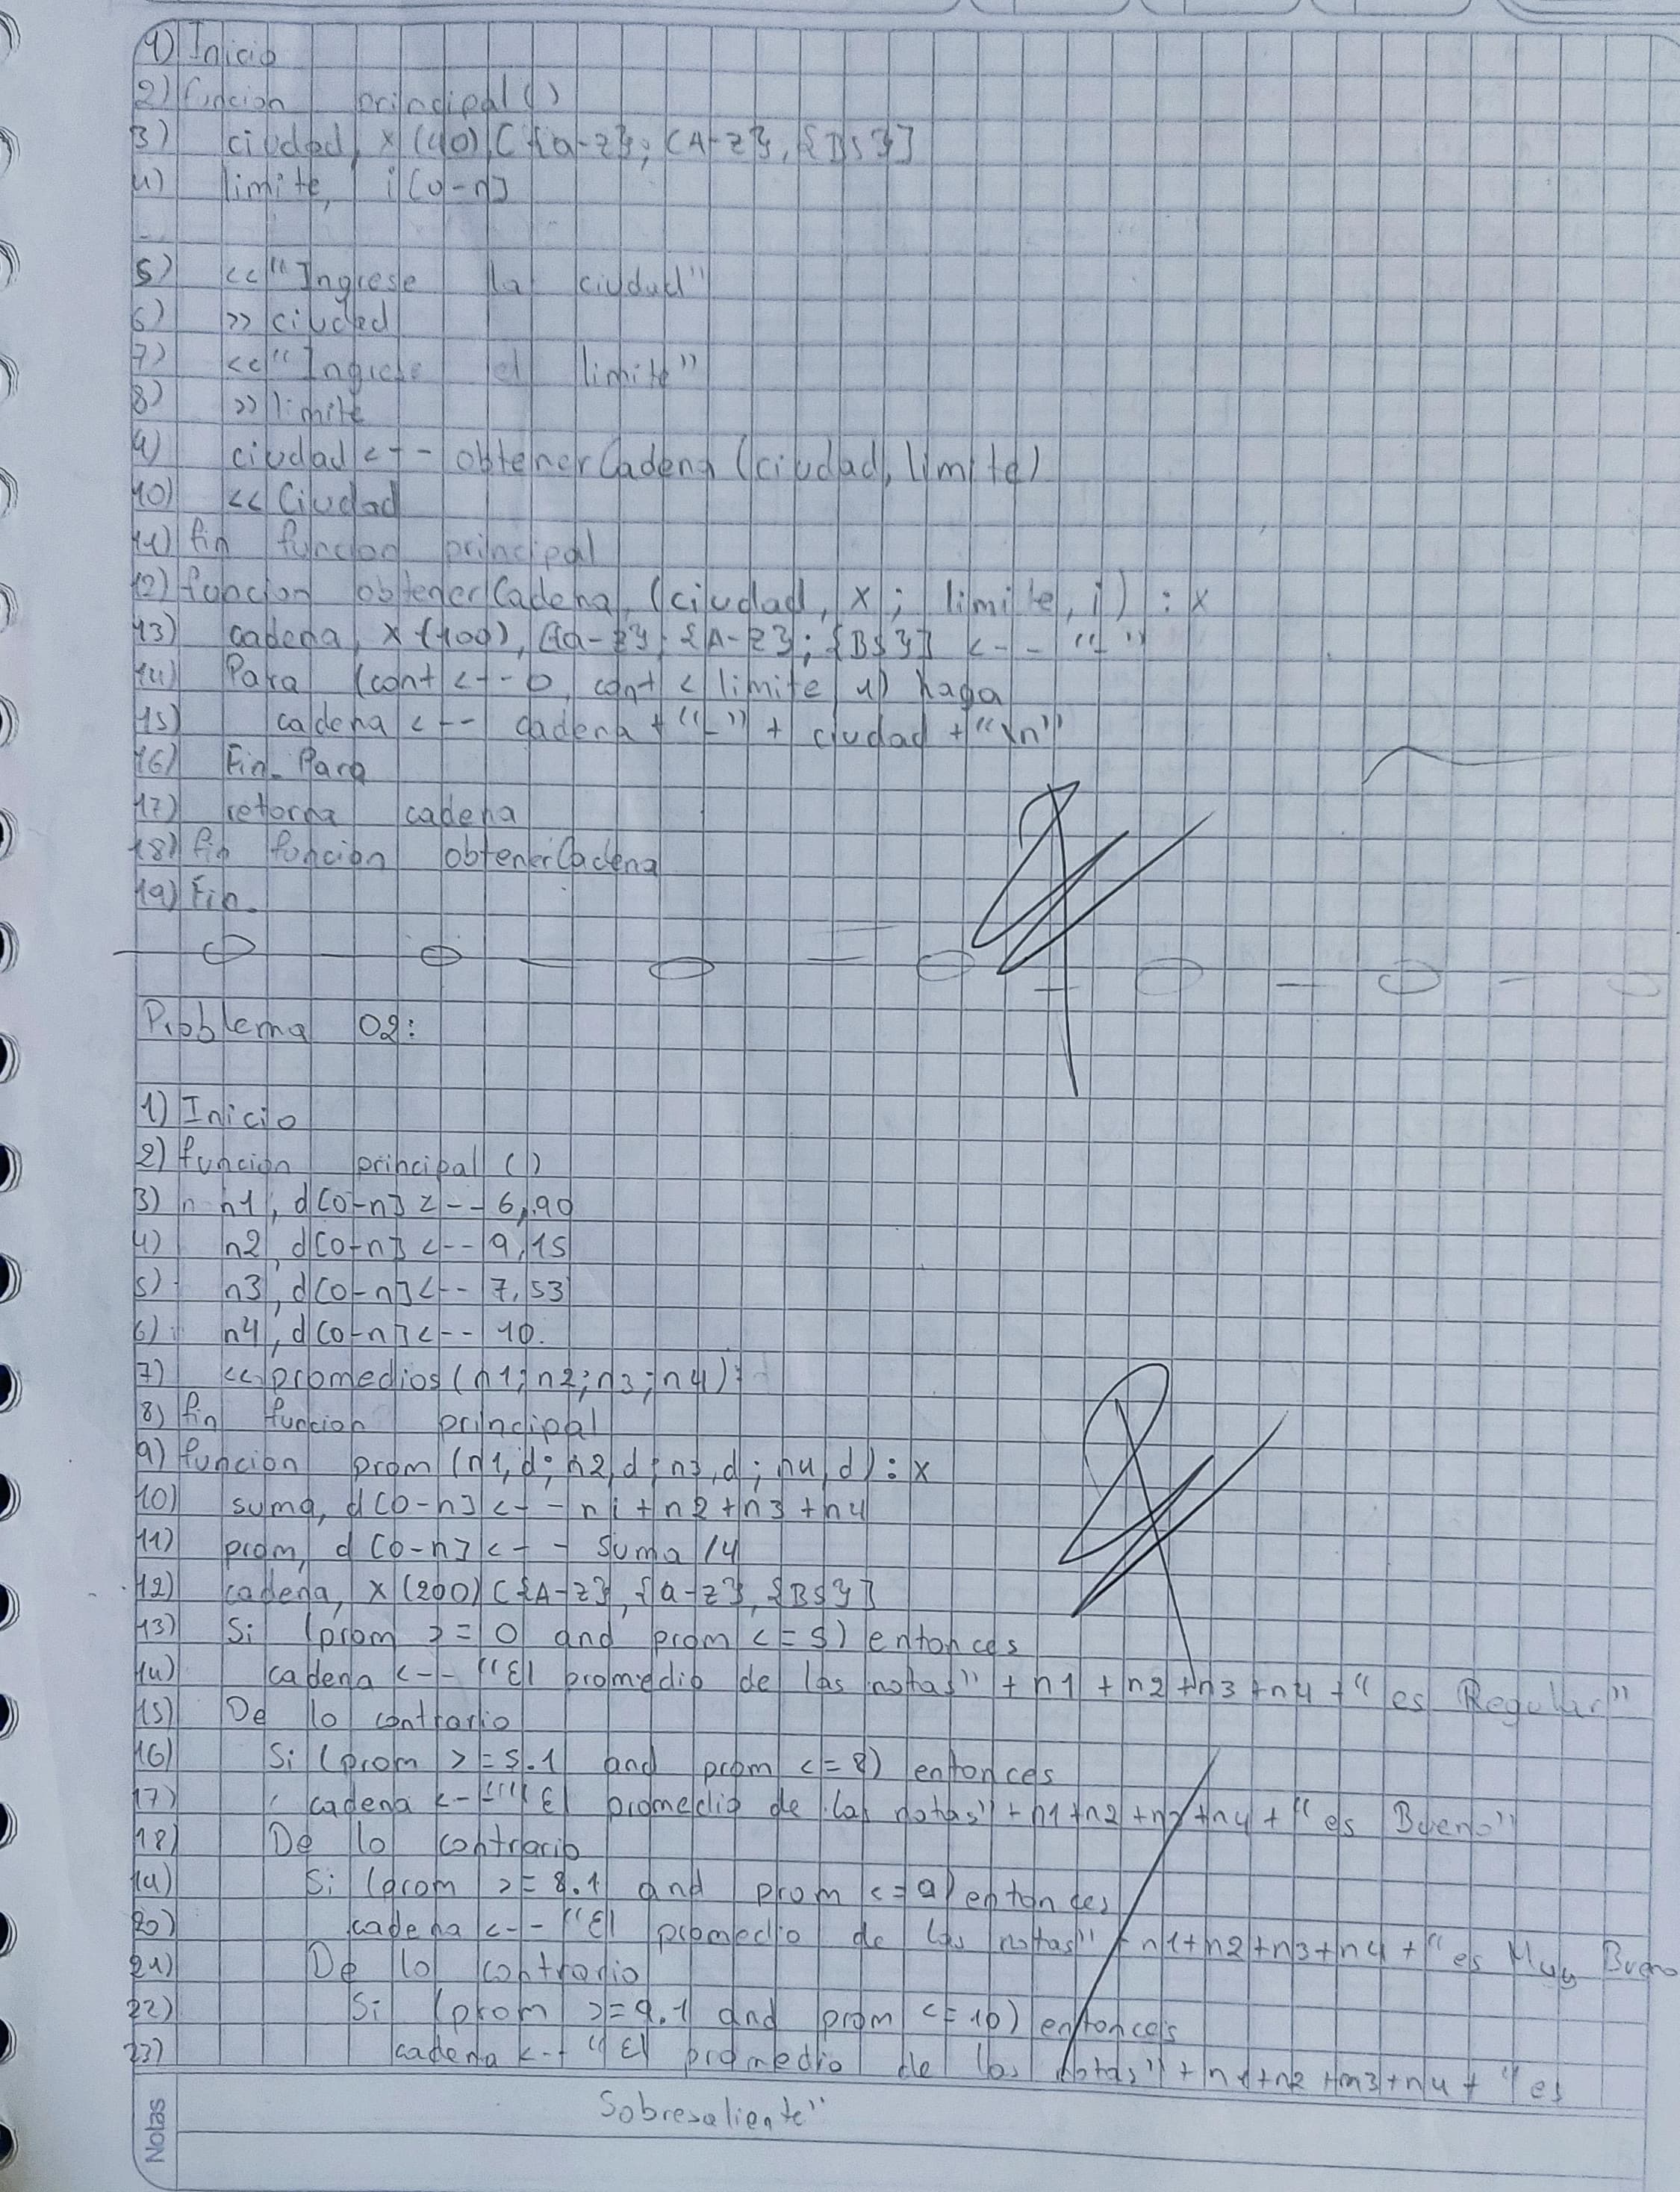 1) Inicio
2) funcion principal()
3) ciudad, x(40), [{a-z}; {A-Z}, {BS}]
4) limite, i[0-n]
5) <<"Ingrese la ciudad"
6) >> ciudad
7) <<"Ingrese el limite"
8) >> limite
9) ciudad <-- obtenerCadena (ciudad, limite)
10) << Ciudad
11) fin funcion principal
12) funcion obtenerCadena, (ciudad, x; limite, i) : x
13) cadena, x(100), [{a-z}; {A-Z}; {BS}] <-- "-"
14) Para (cont <-- 0, cont < limite, 1) haga
15) cadena <-- cadena + "-" + ciudad + "\n"
16) Fin_Para
17) retorna cadena
18) fin funcion obtenerCadena
19) Fin.
Problema 02:
1) Inicio
2) funcion principal ()
3) n1, d[0-n] <-- 6,90
4) n2, d[0-n] <-- 9,15
5) n3, d[0-n] <-- 7,53
6) n4, d[0-n] <-- 10.
7) << promedios(n1; n2; n3; n4)
8) fin funcion principal
9) funcion prom (n1, d; n2, d; n3, d; n4, d) : x
10) suma, d[0-n] <-- n1+n2+n3+n4
11) prom, d[0-n] <-- Suma /4
12) cadena, x(200) [{A-Z}, {a-z}, {BS}]
13) Si (prom >= 0 and prom <= 5) entonces
14) cadena <-- "El promedio de las notas" + n1 + n2 + n3 + n4 + " es Regular"
15) De lo contrario
16) Si (prom >= 5.1 and prom <= 8) entonces
17) cadena <-- "El promedio de las notas" + n1 + n2 + n3 + n4 + " es Bueno"
18) De lo contrario
19) Si (prom >= 8.1 and prom <= 9) entonces
20) cadena <-- "El promedio de las notas" + n1+n2+n3+n4 + " es Muy Bueno
21) De lo contrario
22) Si (prom >= 9.1 and prom <= 10) entonces
23) cadena <-- "El promedio de las notas" + n1+n2+n3+n4 + " es
Sobresaliente"
Notas